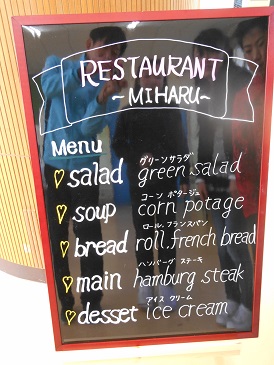 RESTAURANT
~MIHARU~
Menu
グリーンサラダ
♡salad green salad
コーン ポタージュ
♡soup corn potage
ロール、フランスパン
♡bread roll.french bread
ハンバーグ ステーキ
♡main hamburg steak
アイス クリーム
♡desset ice cream